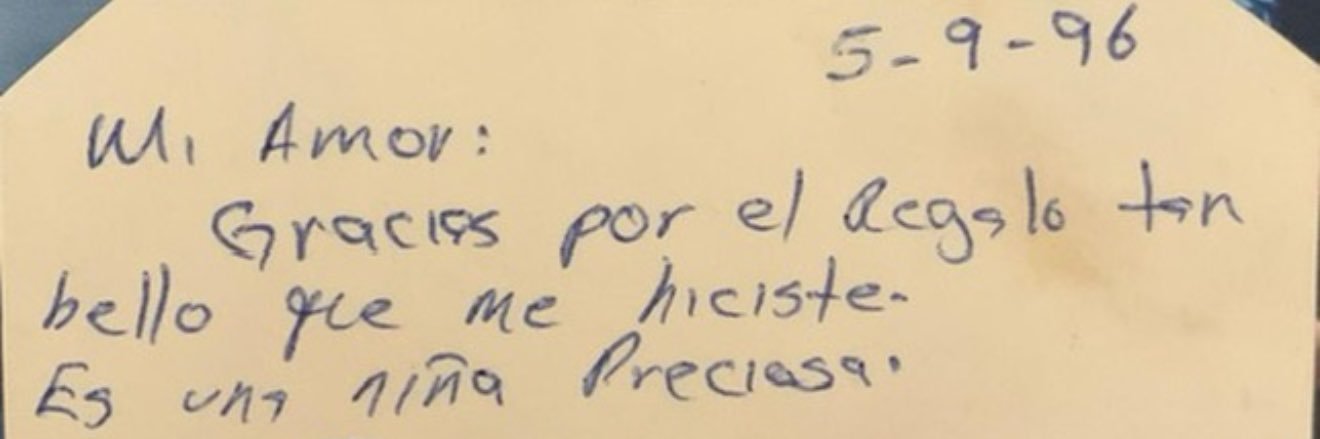 5-9-96
Mi Amor:
Gracias por el Regalo tan
bello que me hiciste.
Es una niña Preciosa.